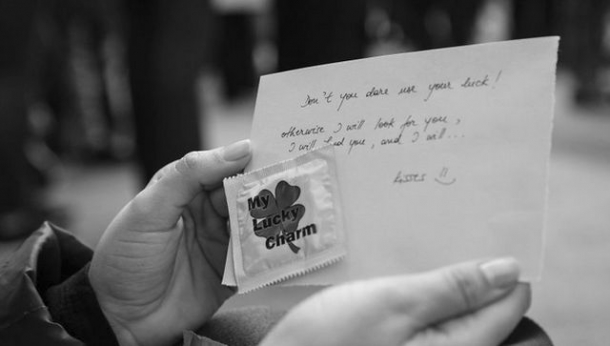 Don't you dare use your luck!
otherwise I will look for you,
I will find you, and I will...
kisses
My
Lucky
Charm